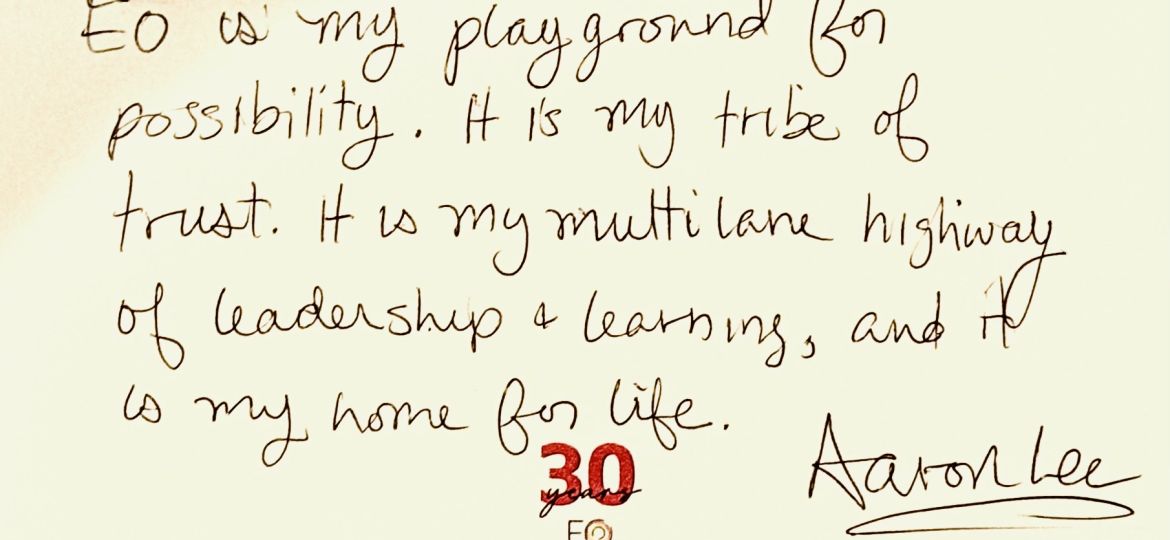 EO is my playground for
possibility. It is my tribe of
trust. It is my multilane highway
of leadership & learning, and it
is my home for life.
30
years
EO
Aaron Lee